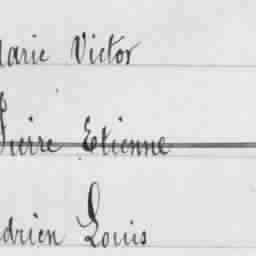 Marie Victor
Pierre Etienne
Adrien Louis